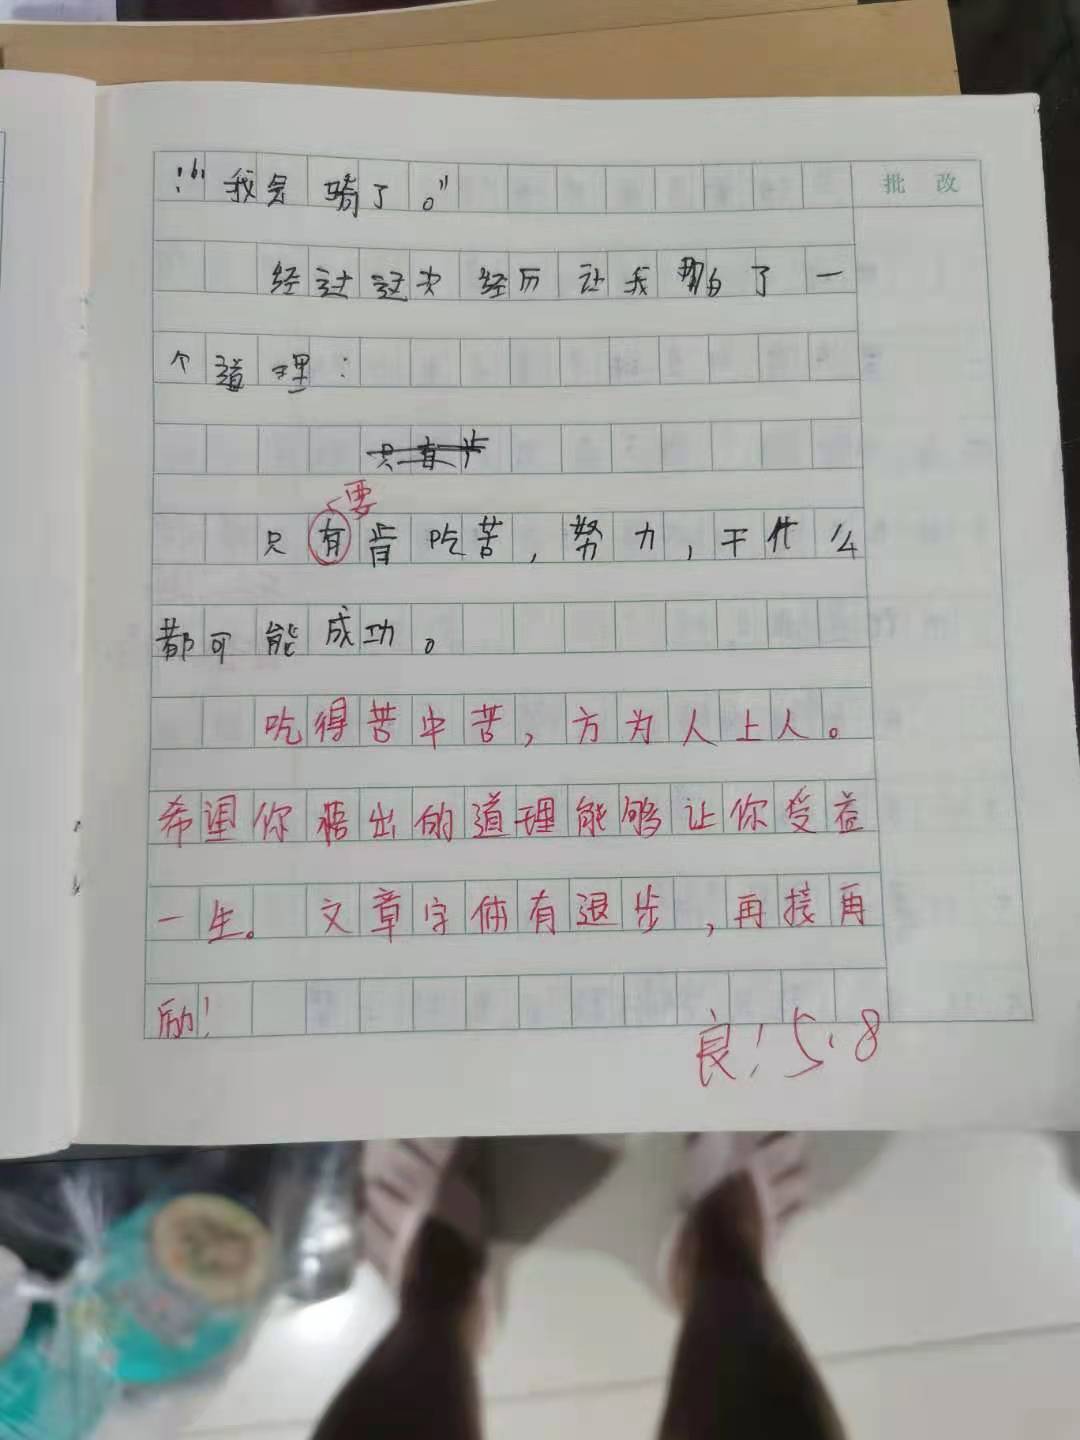 ！“我会骑了。”
批 改
经过这次经历让我明白了一
个道理：
只有步
要
只有肯吃苦，努力，干什么
都可能成功。
吃得苦中苦，方为人上人。
希望你悟出的道理能够让你受益
一生。文章字体有退步，再接再
励！
良！5.8